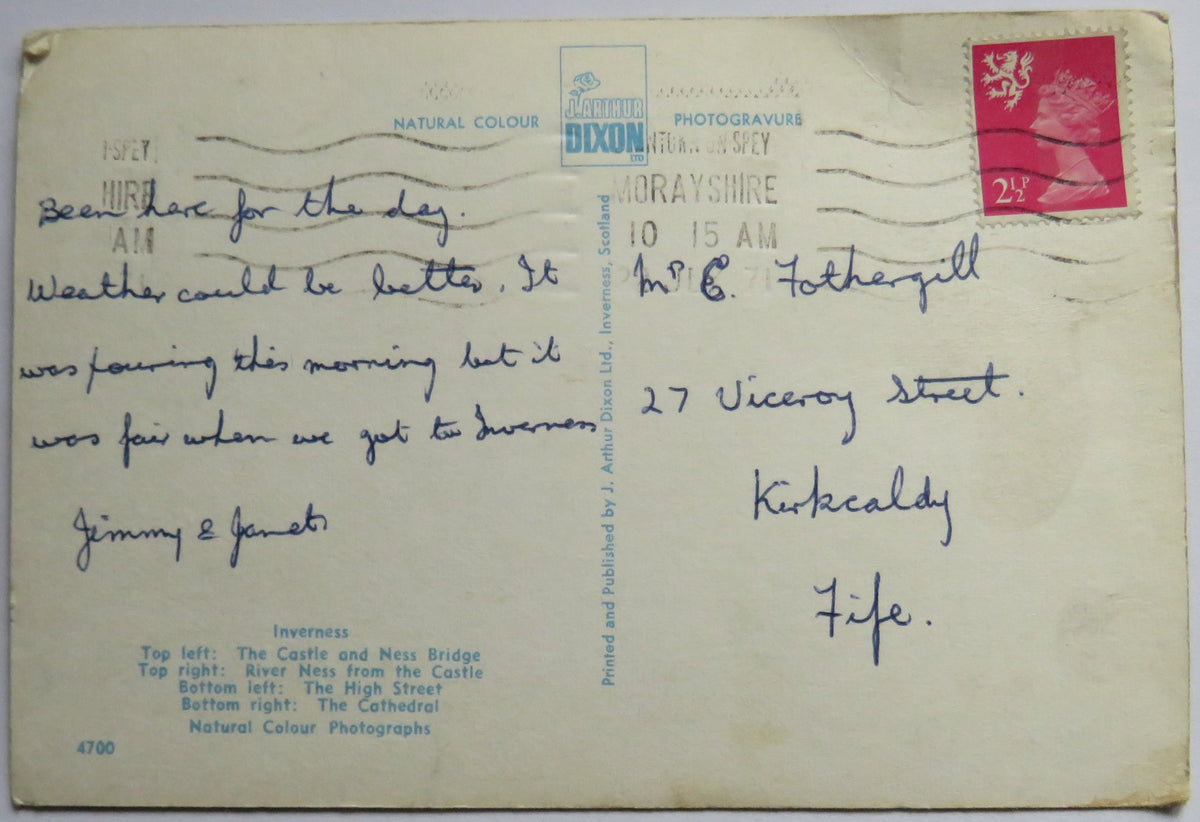 NATURAL COLOUR
J. ARTHUR
DIXON
LTD
PHOTOGRAVURE
SPEY
HIRE
AM
SPEY
MORAYSHIRE
10 15 AM
71
2½P
Been here for the day.
Weather could be better. It
was pouring this morning but it
was fair when we got to Inverness
Jimmy & Janet
Printed and Published by J. Arthur Dixon Ltd., Inverness, Scotland
E. Fothergill
27 Viceroy Street.
Kirkcaldy
Fife.
Inverness
Top left: The Castle and Ness Bridge
Top right: River Ness from the Castle
Bottom left: The High Street
Bottom right: The Cathedral
Natural Colour Photographs
4700